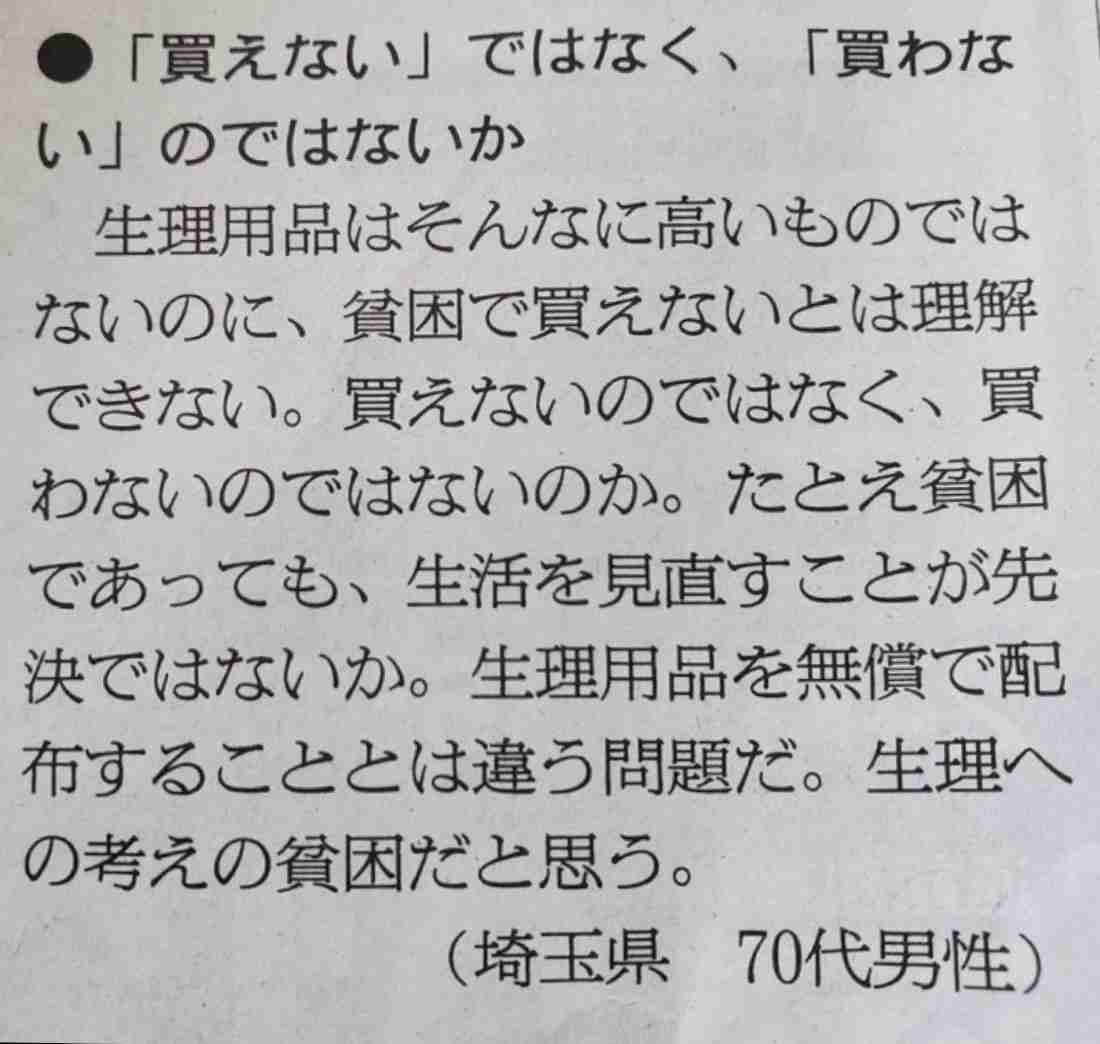 ●「買えない」ではなく、「買わな
い」のではないか
生理用品はそんなに高いものでは
ないのに、貧困で買えないとは理解
できない。買えないのではなく、買
わないのではないのか。たとえ貧困
であっても、生活を見直すことが先
決ではないか。生理用品を無償で配
布することとは違う問題だ。生理へ
の考えの貧困だと思う。
（埼玉県　70代男性）